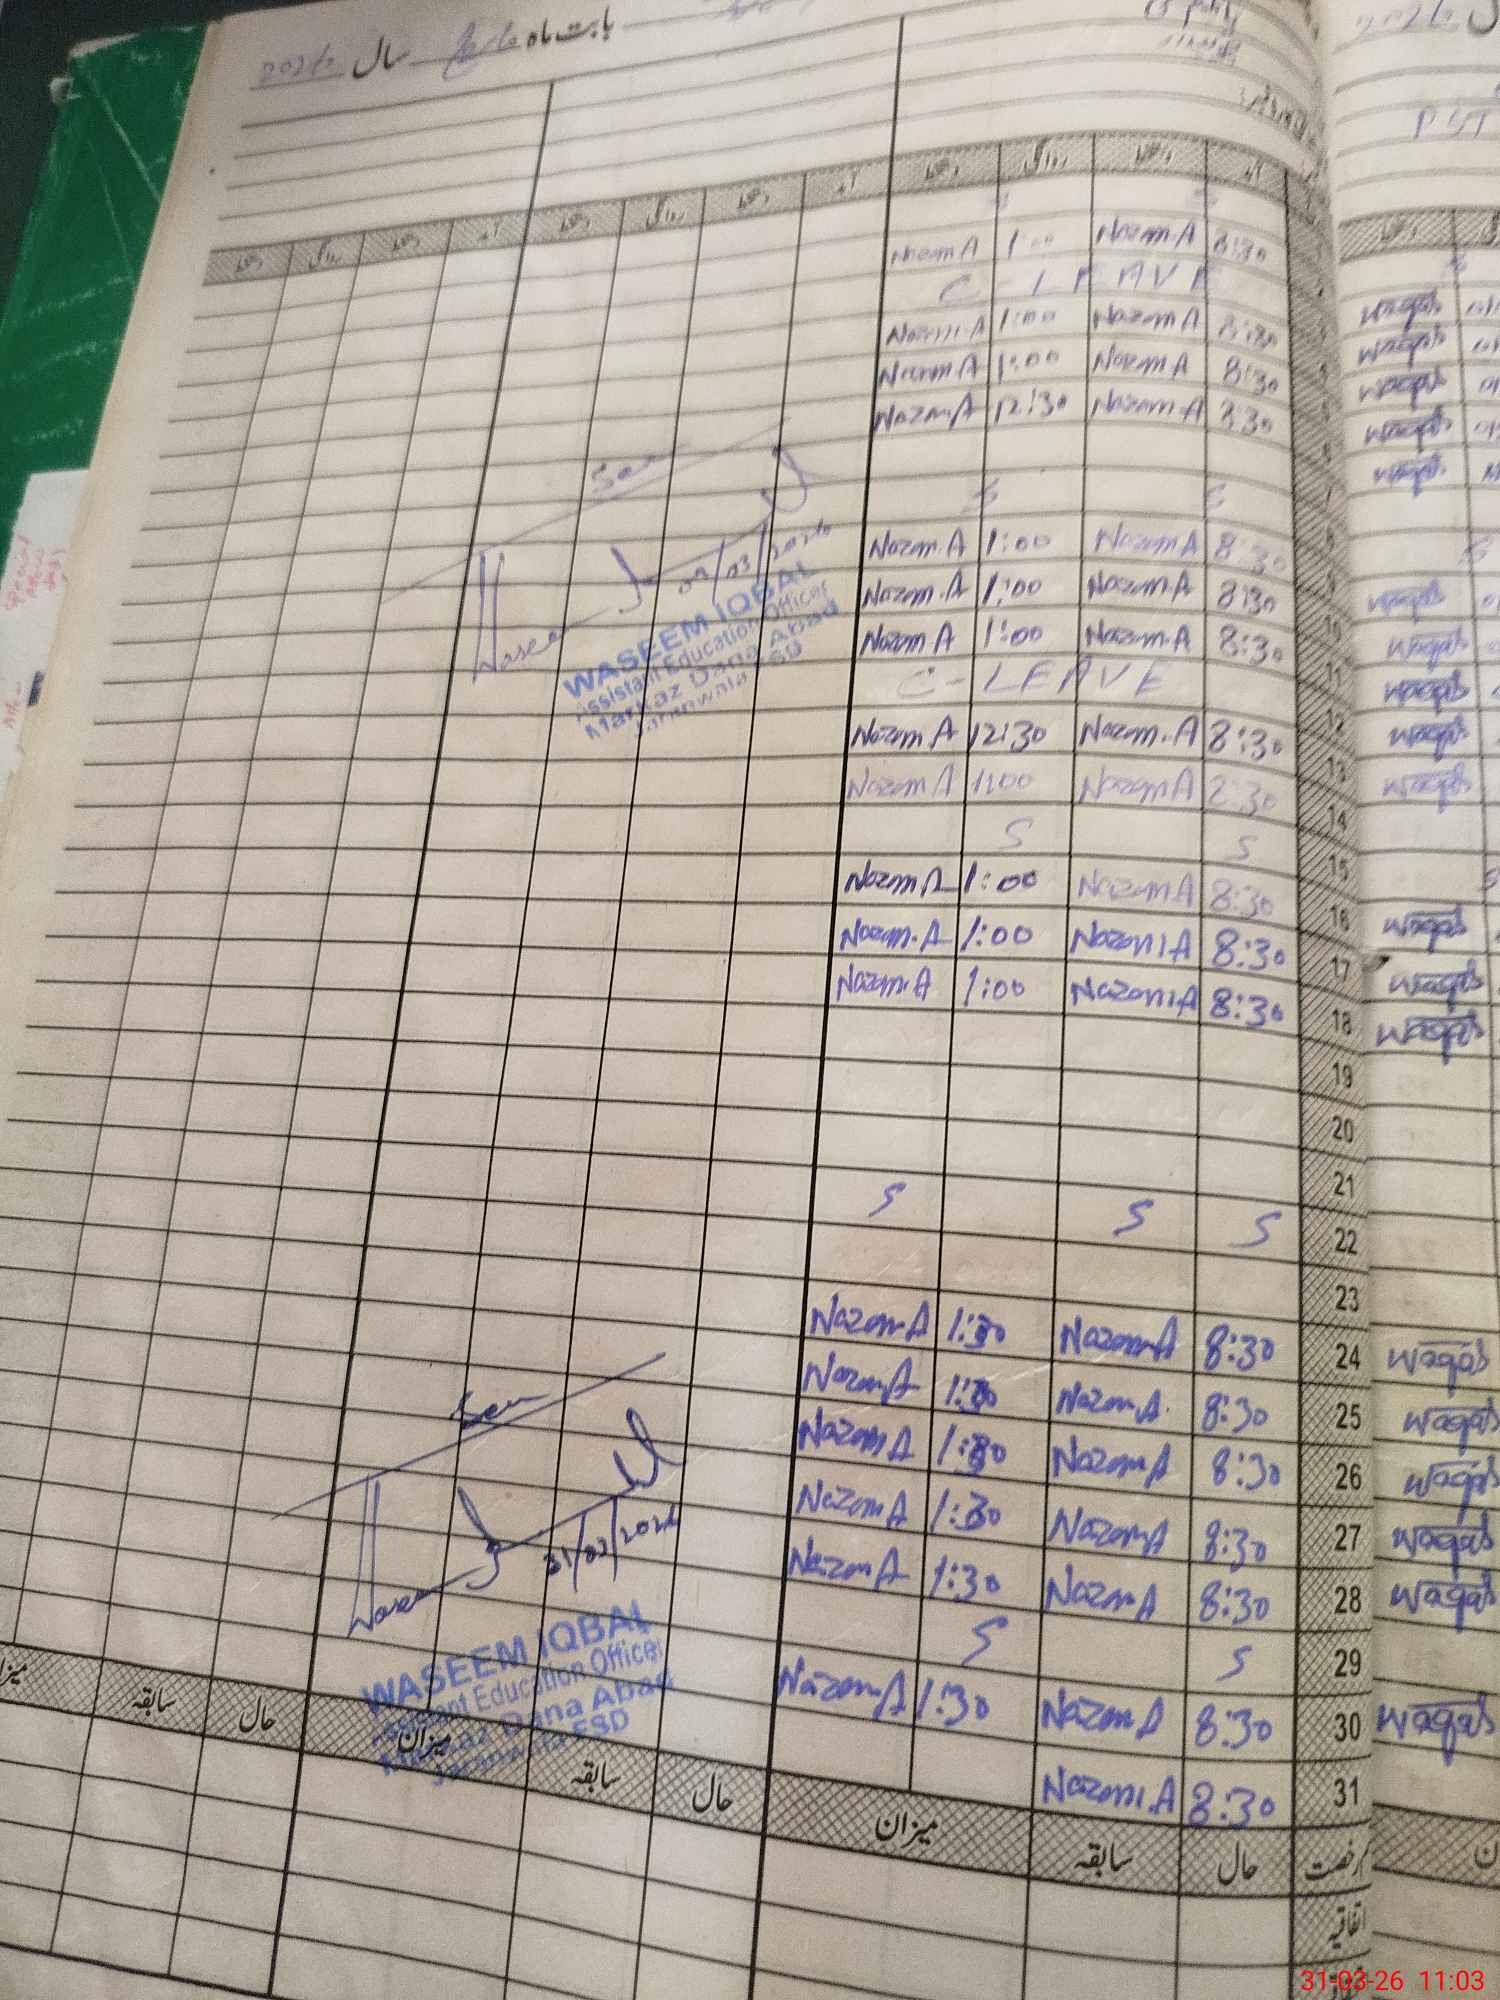 بابت ماہ مارچ سال 2026
آمد دستخط روانگی دستخط آمد دستخط روانگی دستخط آمد دستخط روانگی دستخط
S S
8:30 Nazam A 1:00 Nazam A
C-LEAVE
8:30 Nazam A 1:00 Nazam A
8:30 Nazam A 1:00 Nazam A
8:30 Nazam.A 12:30 Nazam.A
S S
8:30 Nazam A 1:00 Nazam.A
8:30 Nazam.A 1:00 Nazam.A
11 8:30 Nazam.A 1:00 Nazam A
12 C-LEAVE
13 8:30 Nazam.A 12:30 Nazam A
14 8:30 Nazam A 1:00 Nazam A
15 S S
16 8:30 Nazam A 1:00 Nazam A
17 8:30 Nazam A 1:00 Nazam.A
18 8:30 Nazam A 1:00 Nazam.A
19
20
21
22 S S S
23
24 8:30 Nazam A 1:30 Nazam A
25 8:30 Nazam A. 1:30 Nazam A
26 8:30 Nazam A 1:30 Nazam A
27 8:30 Nazam A 1:30 Nazam A
28 8:30 Nazam A 1:30 Nazam A
29 S S
30 8:30 Nazam A 1:30 Nazam A
31 8:30 Nazam.A
رخصت حال سابقہ میزان حال سابقہ میزان حال سابقہ میزان
اتفاقیہ
Seen
Waseem
09/03/2026
WASEEM IQBAL
Assistant Education Officer
Markaz Dana Abad
Jaranwala FSD
Seen
Waseem
31/03/2026
WASEEM IQBAL
Assistant Education Officer
Markaz Dana Abad
Jaranwala FSD
2026
PST
S
waqas
waqas
waqas
waqas
waqas
S
waqas
waqas
waqas
waqas
waqas
S
waqas
waqas
waqas
waqas
waqas
waqas
waqas
waqas
waqas
31-03-26 11:03